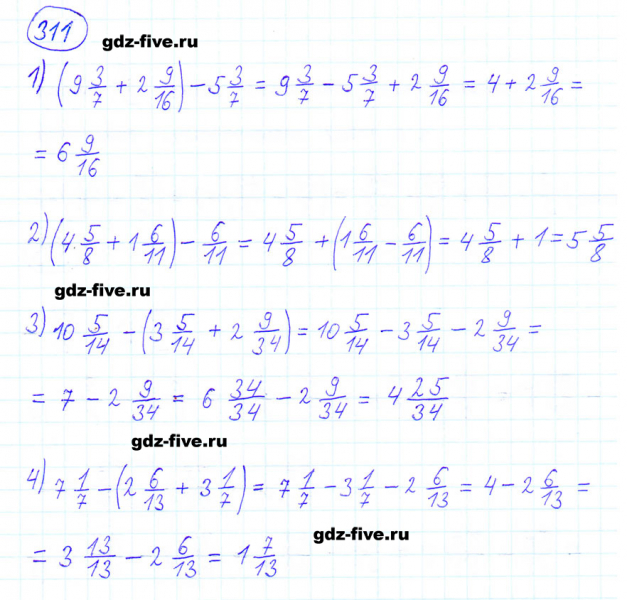 311 gdz-five.ru
1) (9 3/7 + 2 9/16) - 5 3/7 = 9 3/7 - 5 3/7 + 2 9/16 = 4 + 2 9/16 =
= 6 9/16
2) (4 5/8 + 1 6/11) - 6/11 = 4 5/8 + (1 6/11 - 6/11) = 4 5/8 + 1 = 5 5/8
gdz-five.ru
3) 10 5/14 - (3 5/14 + 2 9/34) = 10 5/14 - 3 5/14 - 2 9/34 =
= 7 - 2 9/34 = 6 34/34 - 2 9/34 = 4 25/34
gdz-five.ru
4) 7 1/7 - (2 6/13 + 3 1/7) = 7 1/7 - 3 1/7 - 2 6/13 = 4 - 2 6/13 =
gdz-five.ru
= 3 13/13 - 2 6/13 = 1 7/13